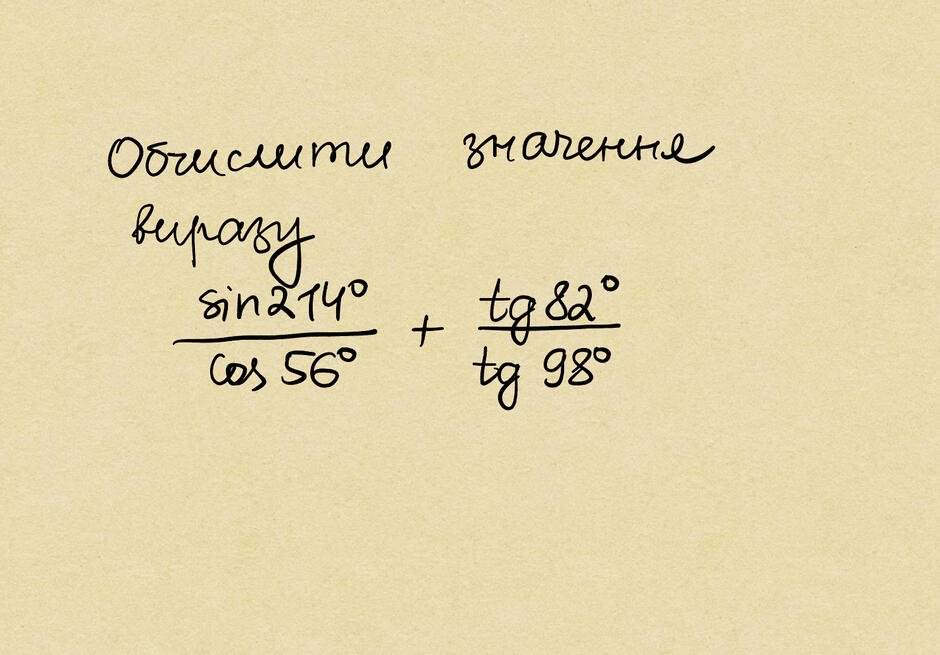 Обчислити значення
виразу
sin214° / cos 56° + tg 82° / tg 98°